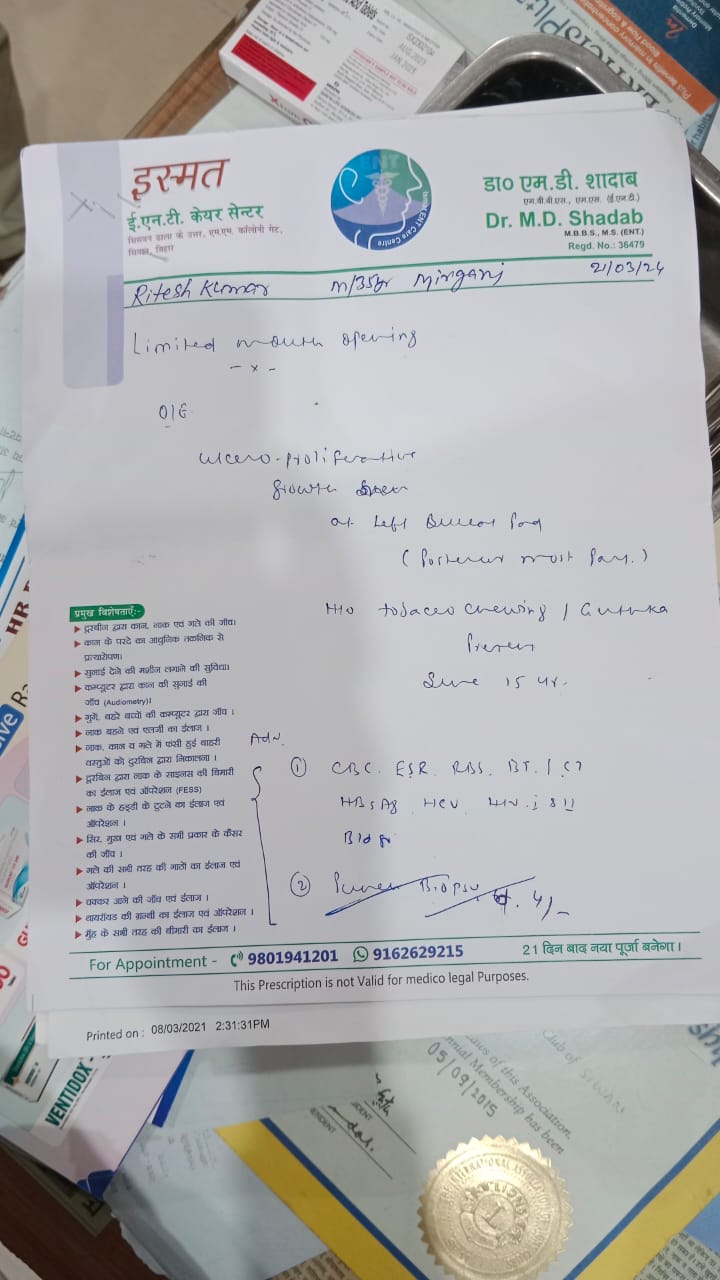 इस्मत
ई.एन.टी. केयर सेन्टर
सिसवन ढाला के उत्तर, एम.एम. कॉलोनी गेट,
सिवान, बिहार
ENT
ENT Care Centre
डा० एम.डी. शादाब
एम.बी.बी.एस., एम.एस. (ई.एन.टी.)
Dr. M.D. Shadab
M.B.B.S., M.S. (ENT.)
Regd. No.: 36479
Ritesh Kumar M/35yr Mirganj 21/03/24
Limited mouth opening
- x -
O/E
ulcero-proliferative
growth
at Left Buccal
(Posterior most Part.)
H/o tobacco chewing / Guthka
Present
Since 15 yr.
Adv.
① CBC. ESR. RBS. BT. / CT
HBsAg HCV HIV i & II
② Biopsy
प्रमुख विशेषताएँ:-
दूरबीन द्वारा कान, नाक एवं गले की जाँच।
कान के परदे का आधुनिक तकनिक से
प्रत्यारोपण।
सुनाई देने की मशीन लगाने की सुविधा।
कम्प्यूटर द्वारा कान की सुनाई की
जाँच (Audiometry)।
गुगे, बहरे बच्चों की कम्प्यूटर द्वारा जाँच ।
नाक बहने एवं एलर्जी का ईलाज ।
नाक, कान व गले में फंसी हुई बाहरी
वस्तुओं को दुरबिन द्वारा निकालना ।
दूरबिन द्वारा नाक के साइनस की बिमारी
का ईलाज एवं ऑपरेशन (FESS)
नाक के हड्डी के टुटने का ईलाज एवं
ऑपरेशन ।
सिर, मुख एवं गले के सभी प्रकार के कैंसर
की जाँच ।
गले की सभी तरह की गाठों का ईलाज एवं
ऑपरेशन ।
चक्कर आने की जाँच एवं ईलाज ।
थायरॉयड की ग्रन्थी का ईलाज एवं ऑपरेशन ।
मुँह के सभी तरह की बीमारी का ईलाज ।
For Appointment - 9801941201 9162629215 21 दिन बाद नया पूर्जा बनेगा।
This Prescription is not Valid for medico legal Purposes.
Printed on : 08/03/2021 2:31:31PM
VENTIDOX
Club of SIWAN
laws of this Association.
nnial Membership has been
05/09/2015
AUG.2023
JAN.2025